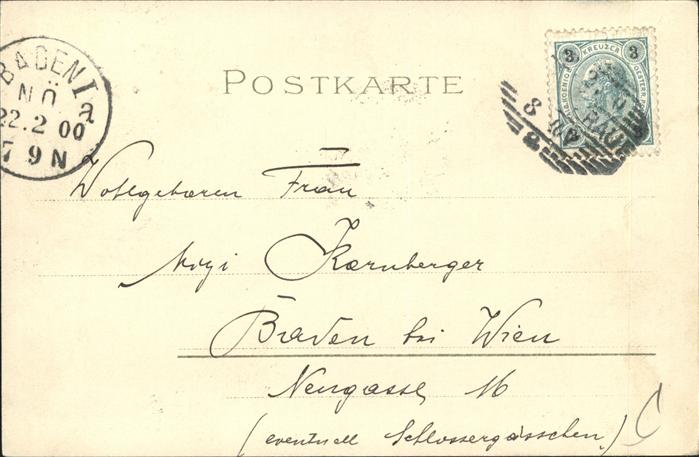 POSTKARTE
3 KREUZER 3
BADEN 1a
N Ö
22.2 00
7 9 N
8
Wohlgeboren Frau
Kornberger
Baden bei Wien
Neugasse 16
(eventuell Schlossergässchen)